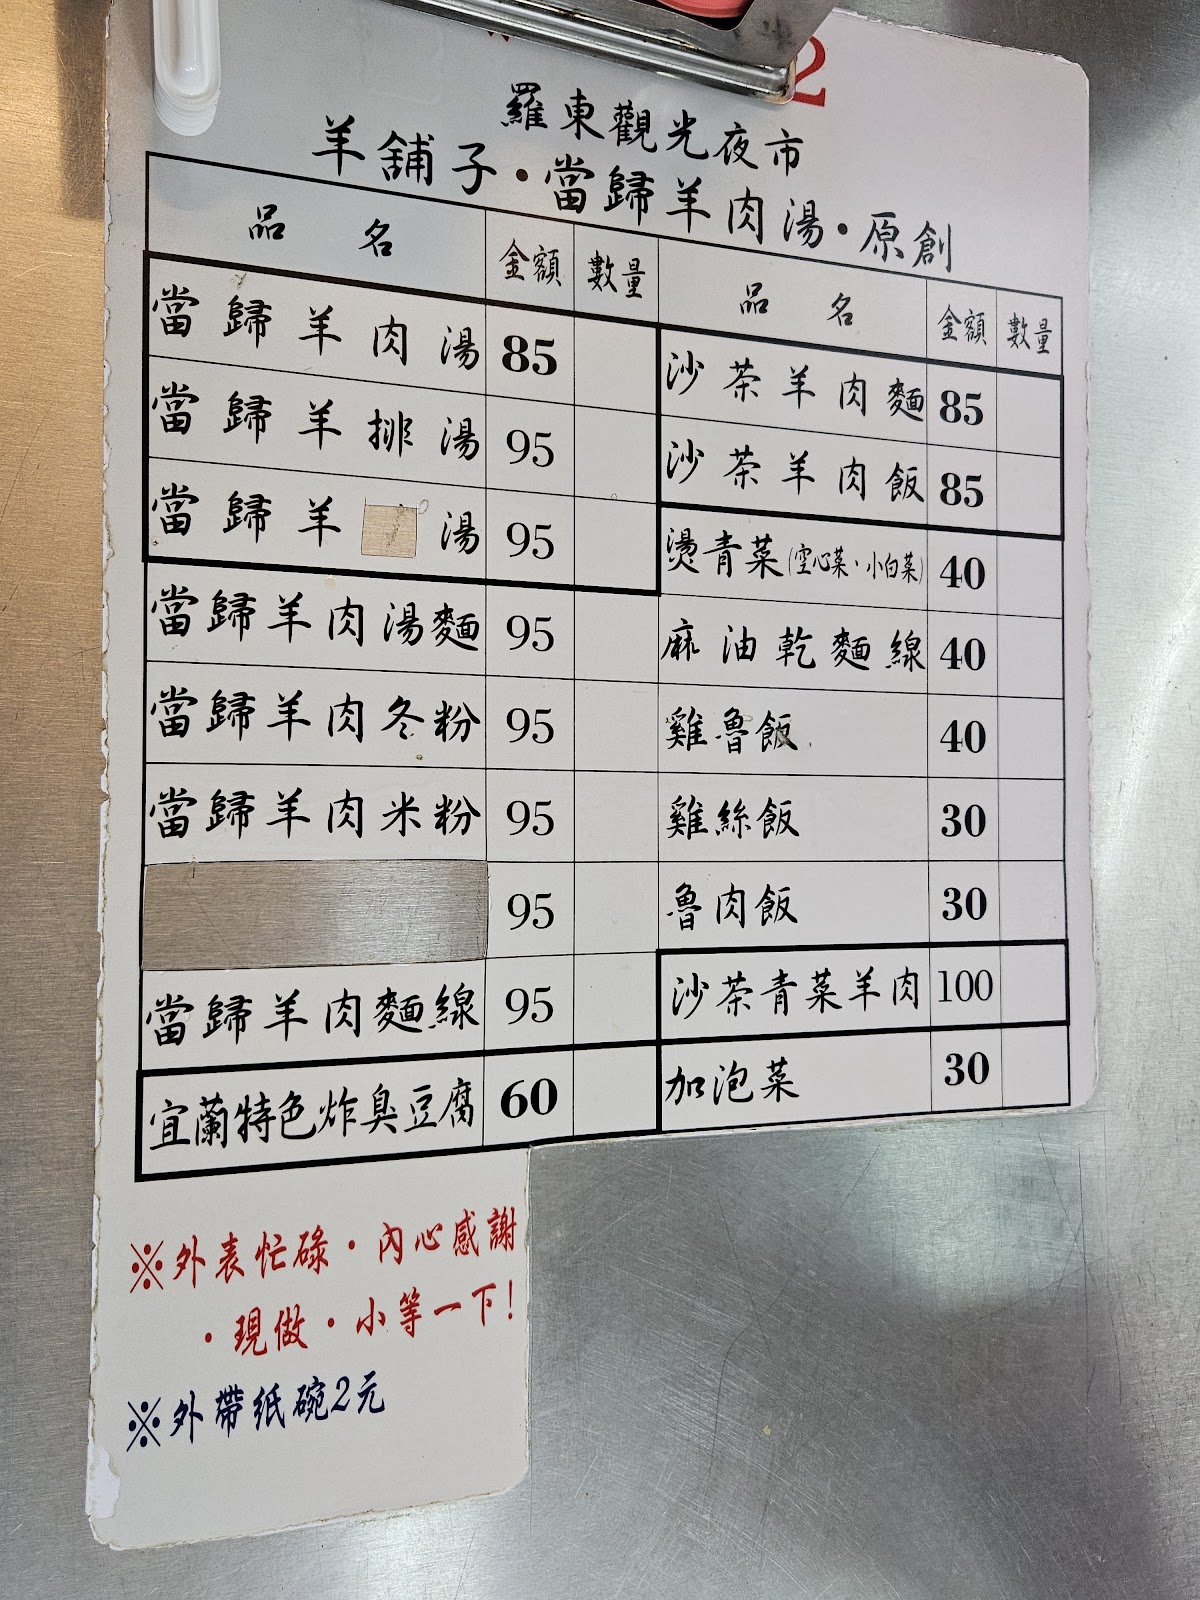 2
羅東觀光夜市
羊舖子・當歸羊肉湯・原創
品名 金額 數量
當歸羊肉湯 85
當歸羊排湯 95
當歸羊 湯 95
當歸羊肉湯麵 95
當歸羊肉冬粉 95
當歸羊肉米粉 95
95
當歸羊肉麵線 95
宜蘭特色炸臭豆腐 60
品名 金額 數量
沙茶羊肉麵 85
沙茶羊肉飯 85
燙青菜(空心菜・小白菜) 40
麻油乾麵線 40
雞魯飯 40
雞絲飯 30
魯肉飯 30
沙茶青菜羊肉 100
加泡菜 30
※外表忙碌・內心感謝
・現做・小等一下!
※外帶紙碗2元